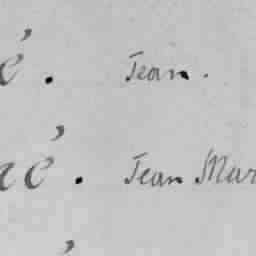 é. Jean.
né. Jean Mar